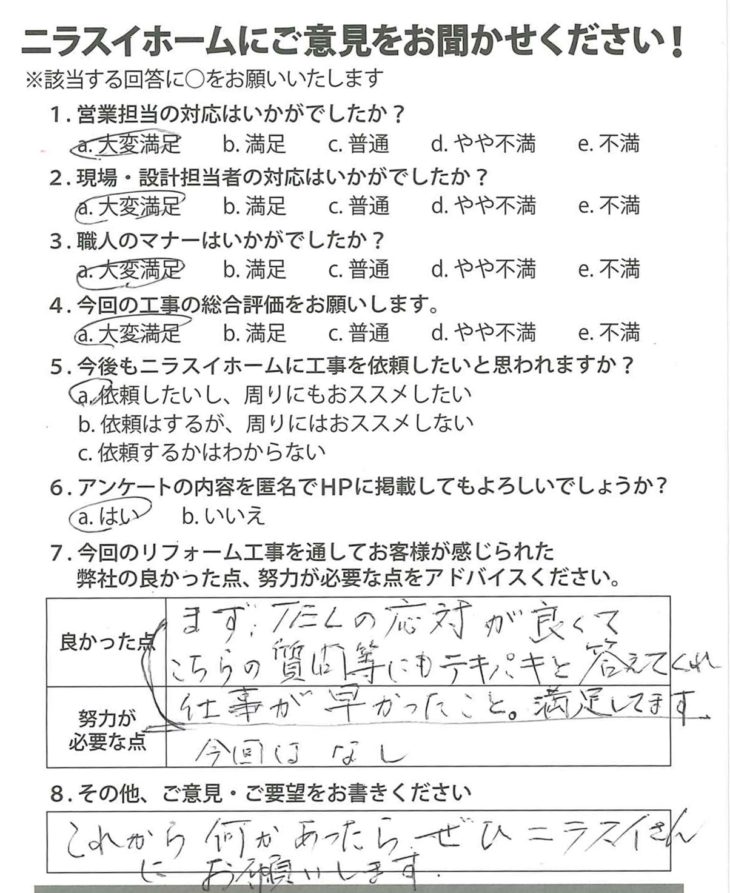 ニラスイホームにご意見をお聞かせください!
※該当する回答に○をお願いいたします
1. 営業担当の対応はいかがでしたか?
a. 大変満足 b. 満足 c. 普通 d. やや不満 e. 不満
2. 現場・設計担当者の対応はいかがでしたか?
a. 大変満足 b. 満足 c. 普通 d. やや不満 e. 不満
3. 職人のマナーはいかがでしたか?
a. 大変満足 b. 満足 c. 普通 d. やや不満 e. 不満
4. 今回の工事の総合評価をお願いします。
a. 大変満足 b. 満足 c. 普通 d. やや不満 e. 不満
5. 今後もニラスイホームに工事を依頼したいと思われますか?
a. 依頼したいし、周りにもおススメしたい
b. 依頼はするが、周りにはおススメしない
c. 依頼するかはわからない
6. アンケートの内容を匿名でHPに掲載してもよろしいでしょうか?
a. はい b. いいえ
7. 今回のリフォーム工事を通してお客様が感じられた
弊社の良かった点、努力が必要な点をアドバイスください。
良かった点
まず、TELの応対が良くて
こちらの質問等にもテキパキと答えてくれ
仕事が早かったこと。満足してます。
努力が
必要な点
今回はなし
8. その他、ご意見・ご要望をお書きください
これから何かあったら、ぜひニラスイさん
にお願いします。